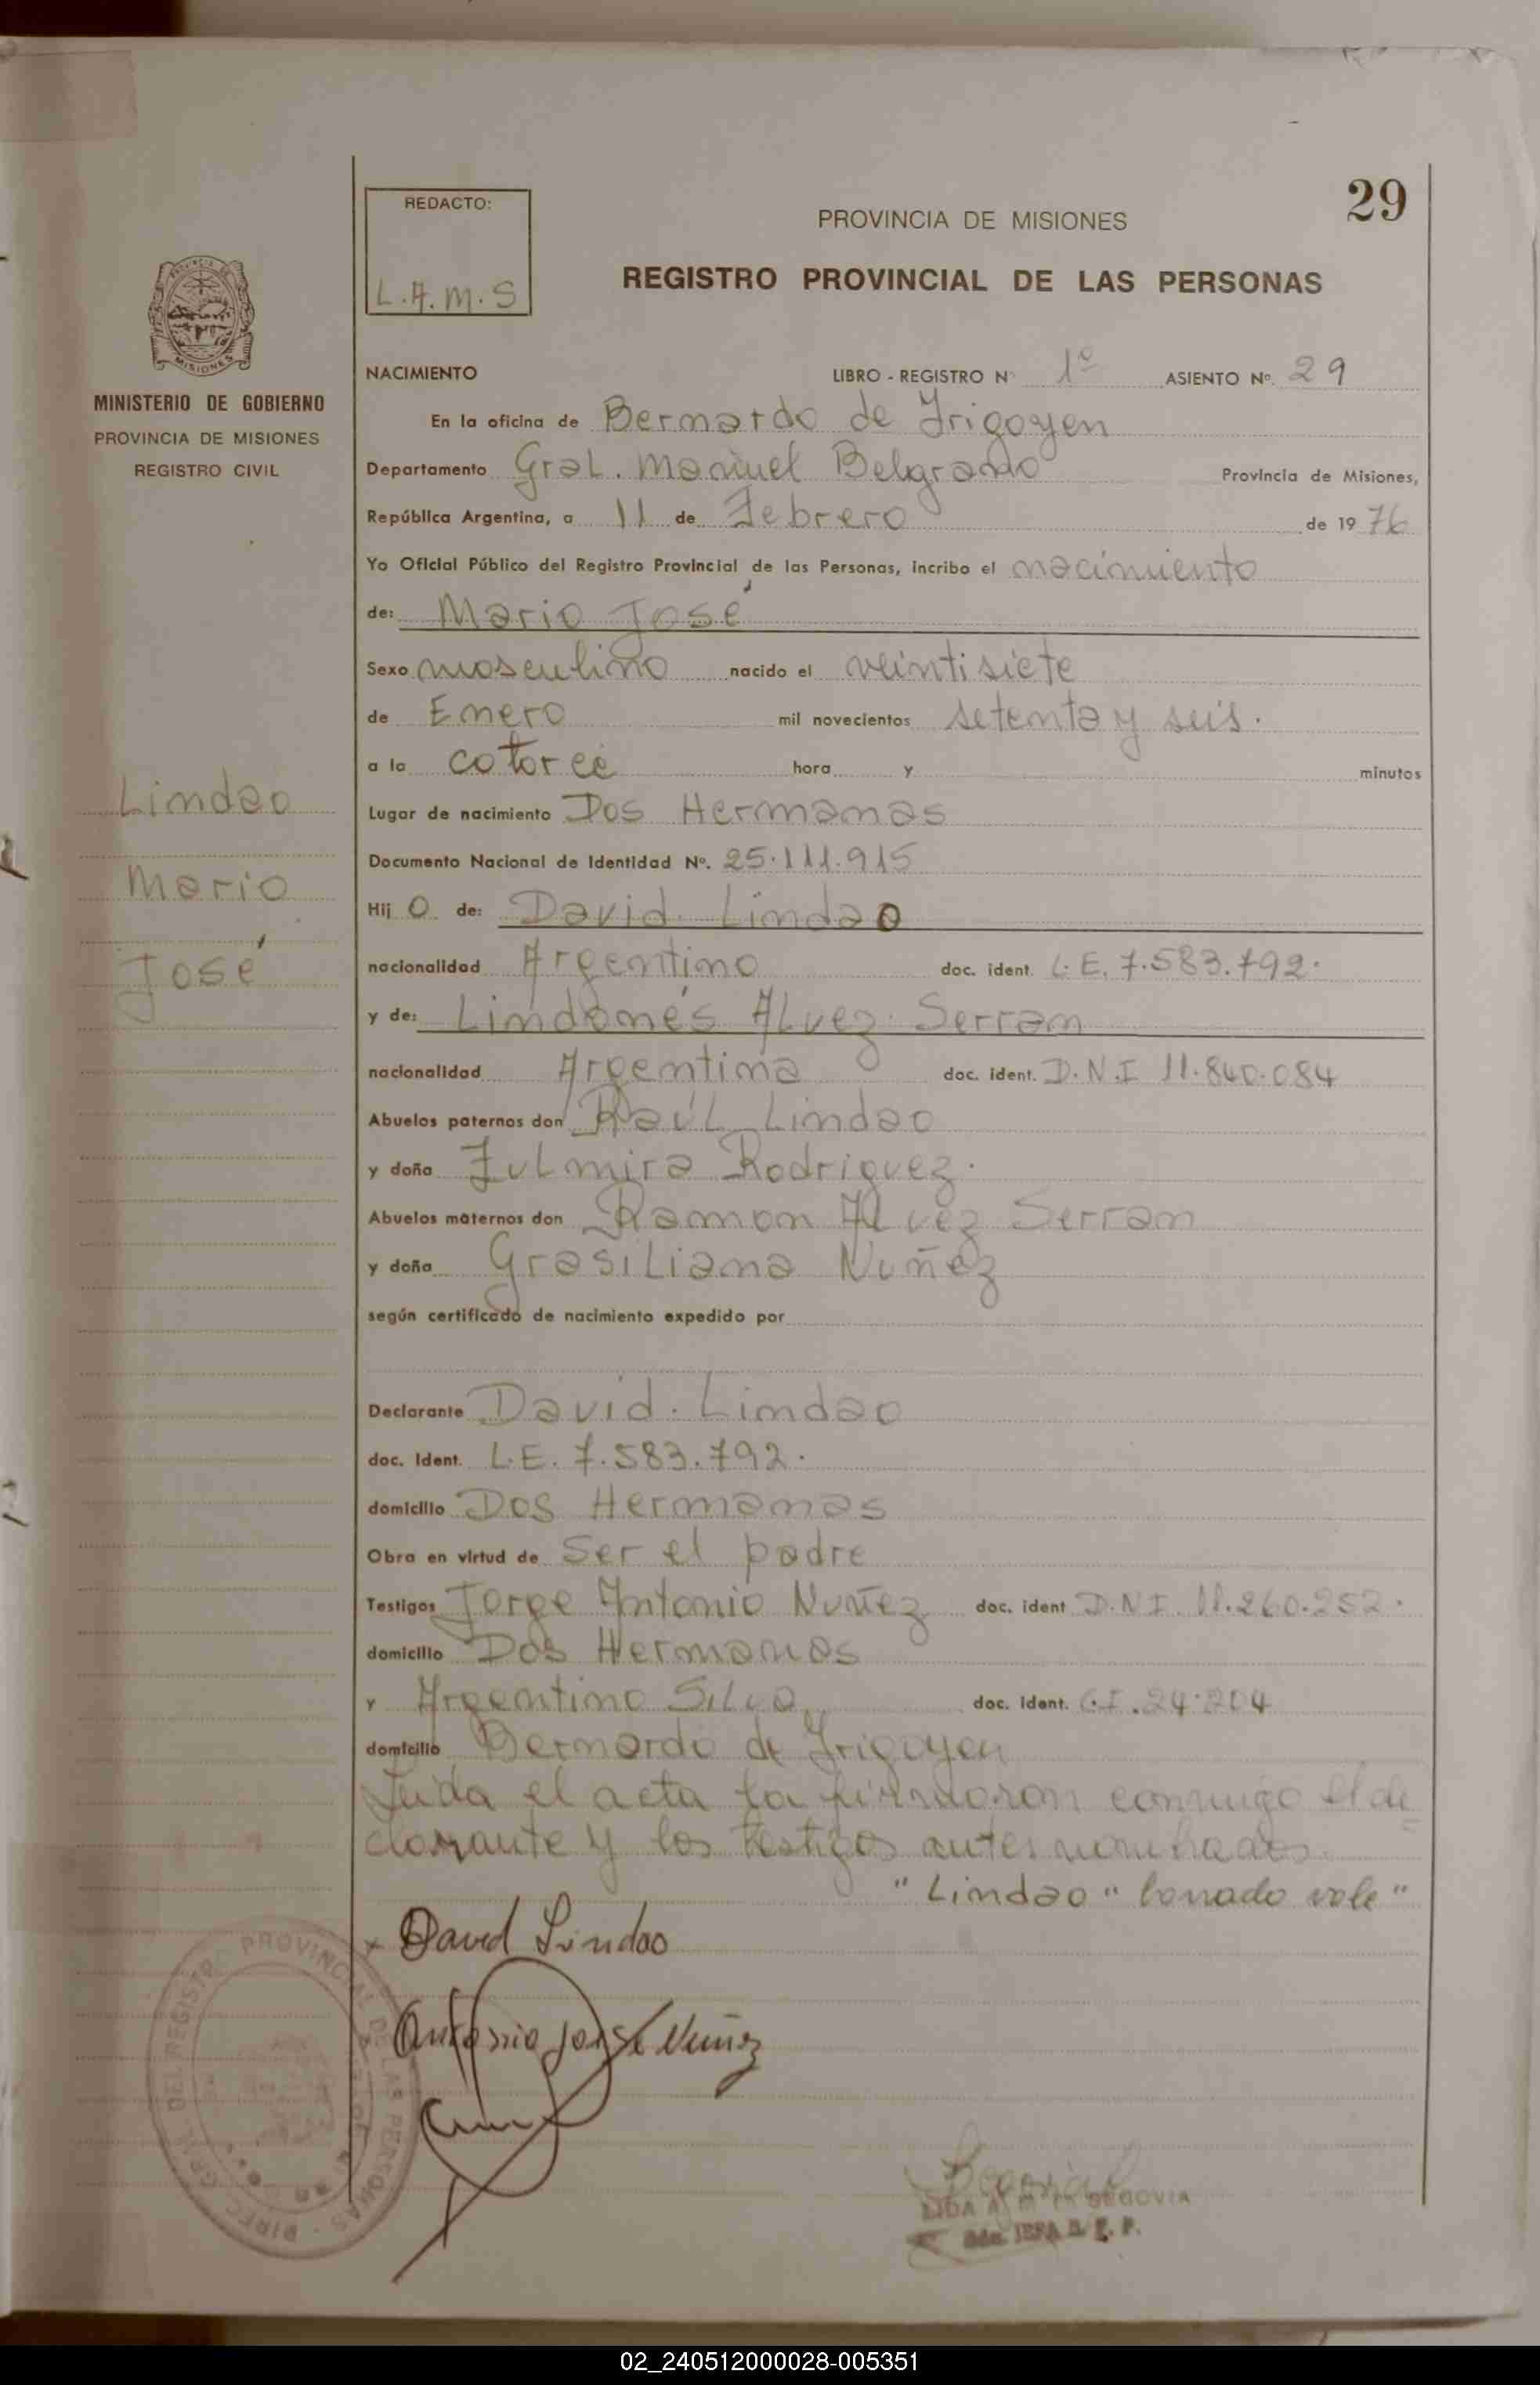 29
REDACTO:
L.A.M.S
PROVINCIA DE MISIONES
REGISTRO PROVINCIAL DE LAS PERSONAS
MISIONES
MINISTERIO DE GOBIERNO
PROVINCIA DE MISIONES
REGISTRO CIVIL
NACIMIENTO LIBRO - REGISTRO Nº 1º ASIENTO Nº. 29
En la oficina de Bernardo de Irigoyen
Departamento Gral. Manuel Belgrano Provincia de Misiones,
República Argentina, a 11 de Febrero de 1976
Yo Oficial Público del Registro Provincial de las Personas, incribo el nacimiento
de: Mario José
Sexo masculino nacido el veintisiete
de Enero mil novecientos setenta y seis.
a la catorce hora y minutos
Lugar de nacimiento Dos Hermanas
Documento Nacional de Identidad Nº. 25.111.915
Hij o de: David Lindao
nacionalidad Argentino doc. ident. L.E. 7.583.792.
y de: Lindonés Alvez Serran
nacionalidad Argentina doc. ident. D.N.I 11.840.084
Abuelos paternos don Raúl Lindao
y doña Zulmira Rodriguez.
Abuelos maternos don Ramon Alvez Serran
y doña Grasiliana Nuñez
según certificado de nacimiento expedido por
Declarante David. Lindao
doc. Ident. L.E. 7.583.792.
domicilio Dos Hermanas
Obra en virtud de Ser el padre
Testigos Jorge Antonio Nuñez doc. ident D.N.I. 11.260.252.
domicilio Dos Hermanas
y Argentino Silva doc. Ident. C.I. 24.204
domicilio Bernardo de Irigoyen
Leida el acta la firmaron conmigo el de=
clarante y los testigos antes nombrados.
"Lindao" borrado vale"
Lindao
Mario
José
x David Lindao
Antonio Jorge Nuñez
DIREC. GRAL. DEL REGISTR. PROVINCIAL DE LAS PERSONAS
SEGOVIA
02_240512000028-005351